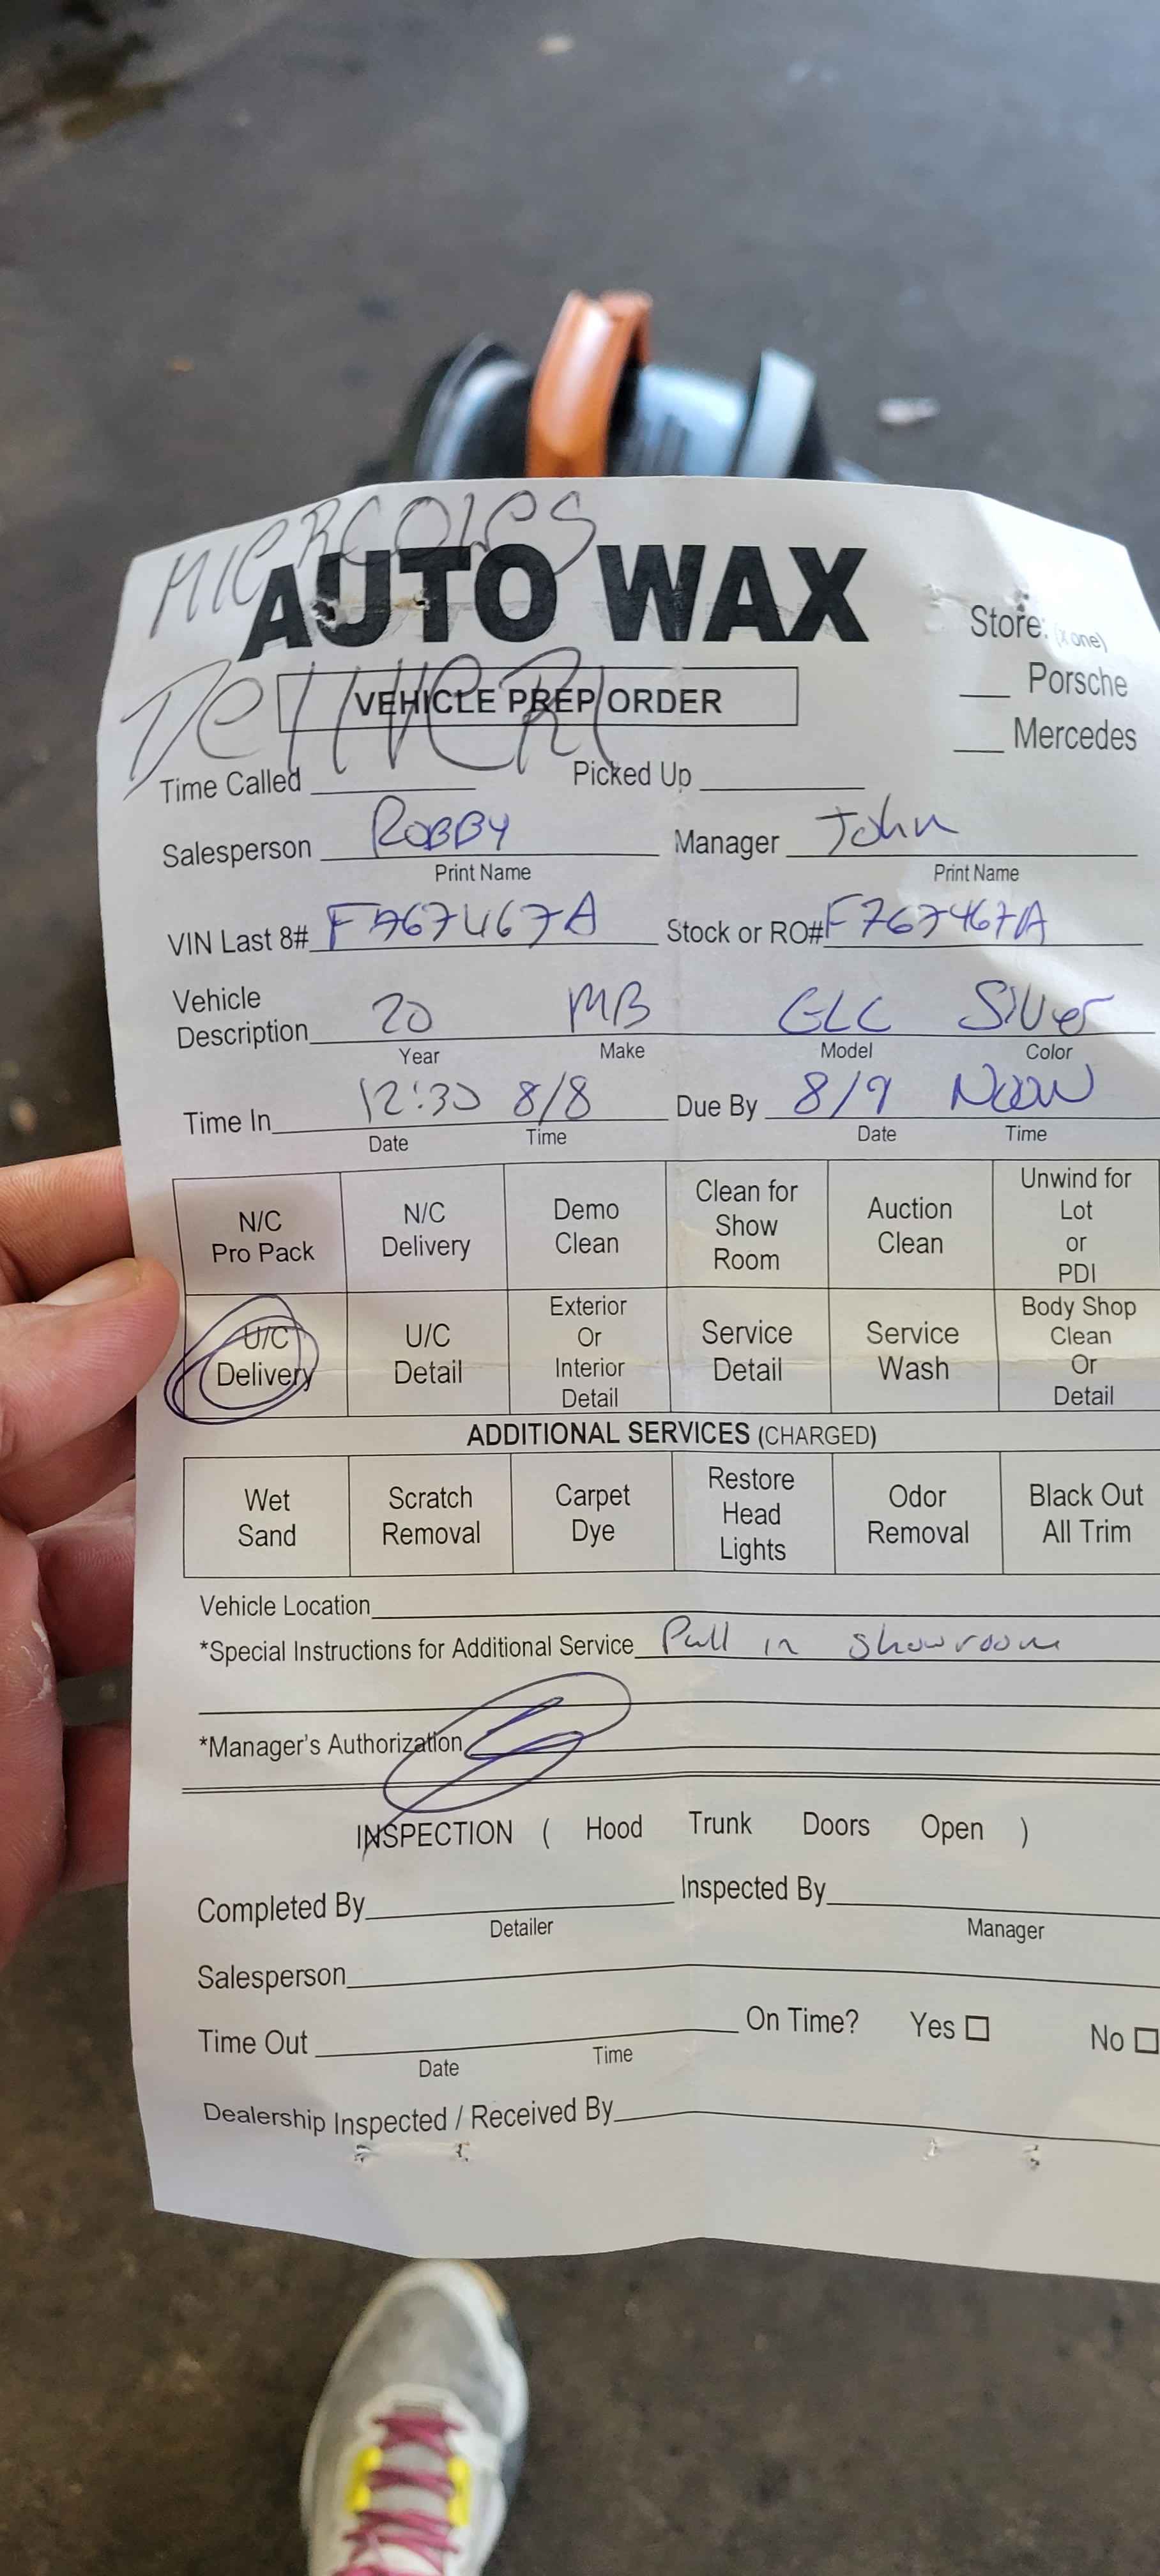 MIERCOLES
AUTO WAX
Store: (x one)
___ Porsche
___ Mercedes
DELIVERI
VEHICLE PREP ORDER
Time Called ______ Picked Up ______
Salesperson ROBBY Manager John
Print Name Print Name
VIN Last 8# F767467A Stock or RO# F767467A
Vehicle Description 20 MB GLC Silver
Year Make Model Color
Time In 12:30 8/8 Due By 8/9 NOON
Date Time Date Time
N/C Pro Pack N/C Delivery Demo Clean Clean for Show Room Auction Clean Unwind for Lot or PDI
U/C Delivery U/C Detail Exterior Or Interior Detail Service Detail Service Wash Body Shop Clean Or Detail
ADDITIONAL SERVICES (CHARGED)
Wet Sand Scratch Removal Carpet Dye Restore Head Lights Odor Removal Black Out All Trim
Vehicle Location
*Special Instructions for Additional Service Pull in showroom
*Manager's Authorization
INSPECTION ( Hood Trunk Doors Open )
Completed By Inspected By
Detailer Manager
Salesperson
Time Out On Time? Yes ☐ No ☐
Date Time
Dealership Inspected / Received By